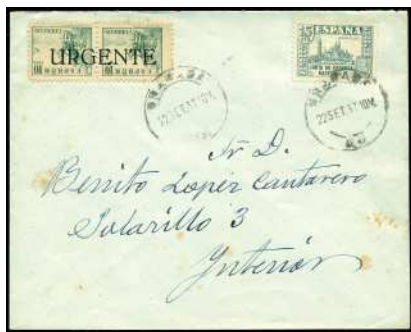 URGENTE
ESPAÑA
22SET.37.10M.
22SET.37.10M.
Sr D.
Benito Lopez Cantarero
Solarillo 3
Interior